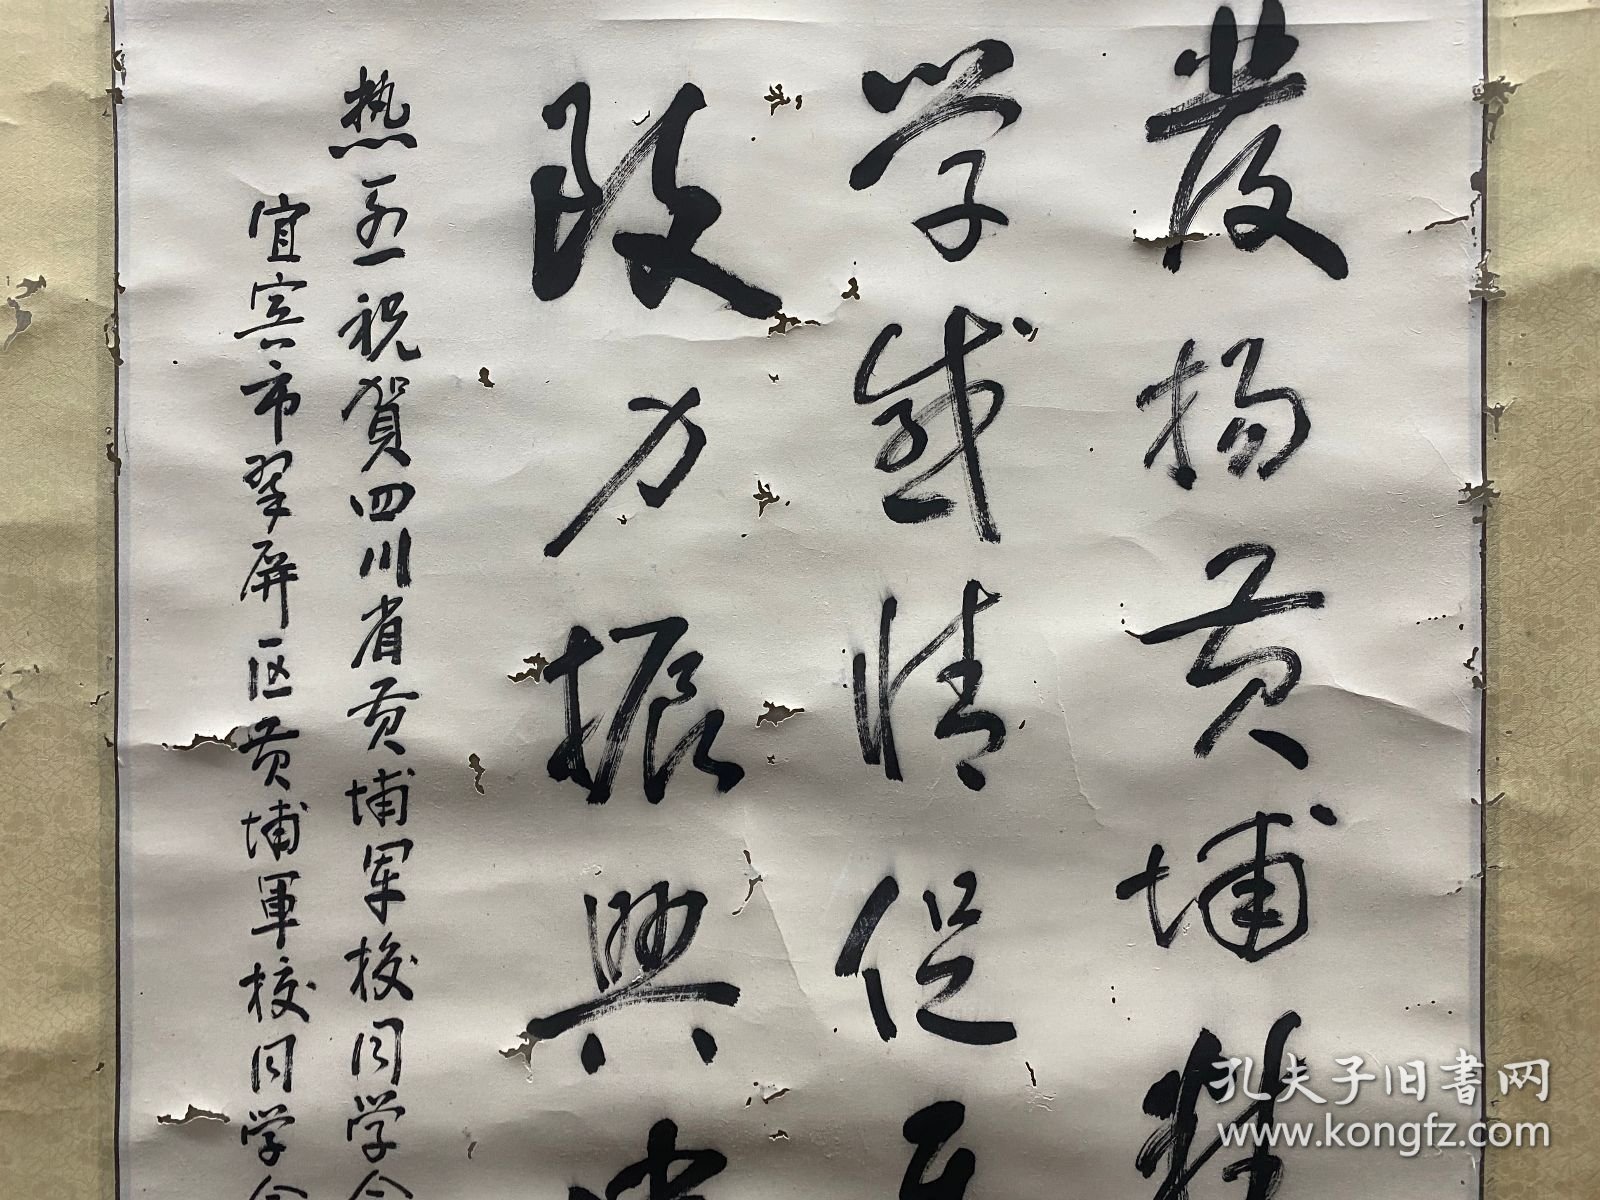 發扬黄埔精
学感情促
致力振興中
热烈祝贺四川省黄埔军校同学会
宜宾市翠屏区黄埔軍校同学会
孔夫子旧书网
www.kongfz.com